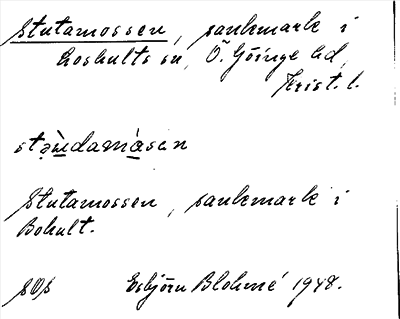 Stutamossen, sankmark i
Loshults sn, Ö. Göinge hd,
Krist. l.
Stutamossen, sankmark i
Bohult.
SOS Esbjörn Blohmé 1948.